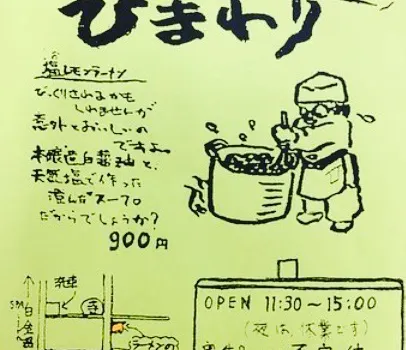 ひまわり
塩レモンラーメン
びっくりされるかも
しれませんが
意外とおいしいの
ですよ。
本醸造白醤油と、
天然塩で作った
澄んだスープ
だからでしょうか?
900円
洗車
OPEN 11:30～15:00
(夜は、休業です)
ラーメンの